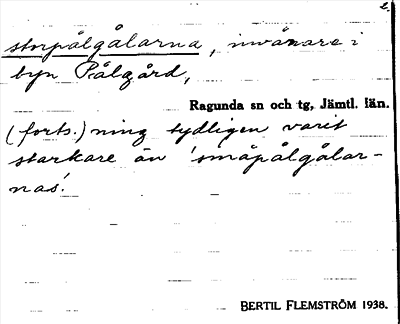 2.
storpålgålarna, invånare i
byn Pålgård,
Ragunda sn och tg, Jämtl. län.
(forts.) ning tydligen varit
starkare än 'småpålgålar-
nas'.
BERTIL FLEMSTRÖM 1938.